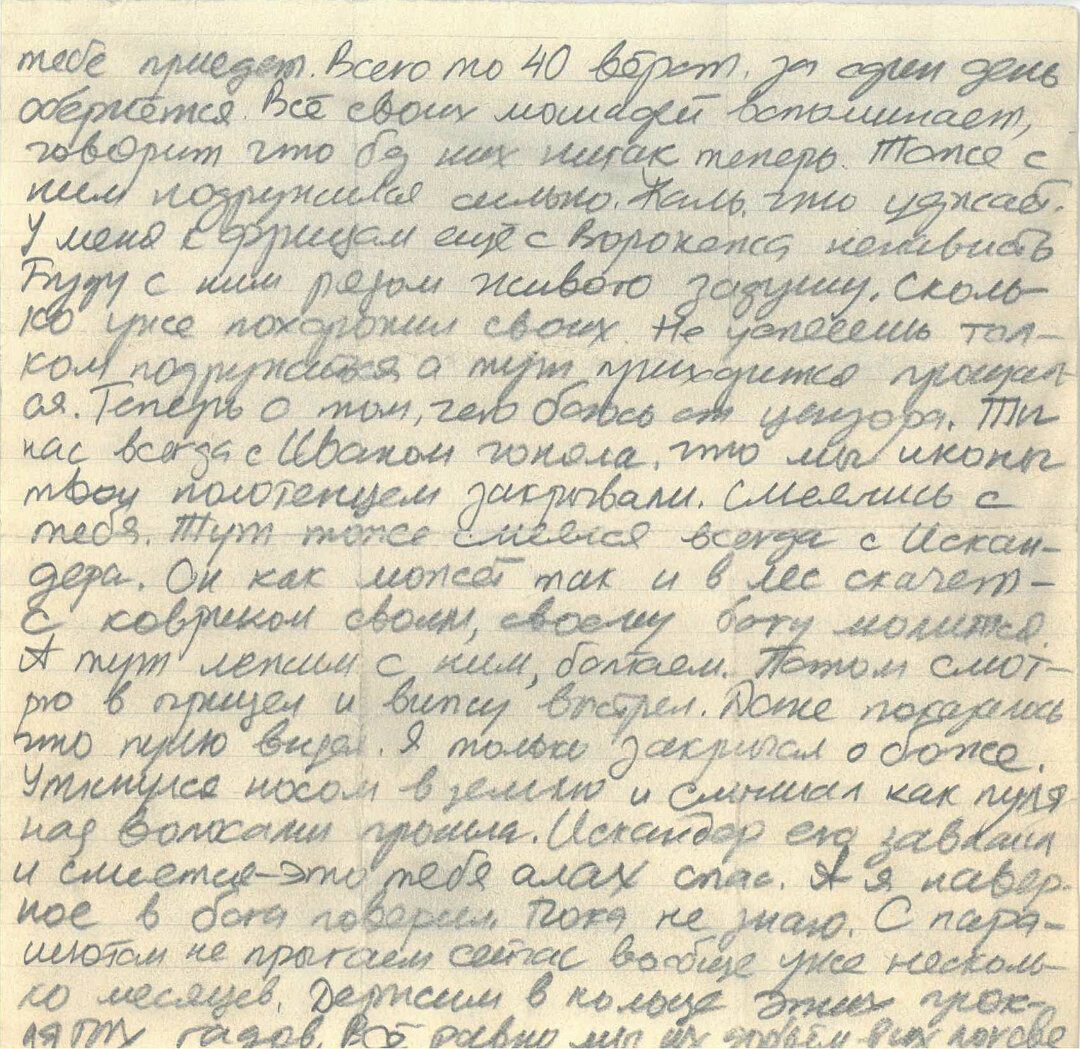 тебе приедет. Всего то 40 вёрст, за один день
обернётся. Всё своих лошадей вспоминает,
говорит что без них никак теперь. Тоже с
ним подружился сильно. Жаль, что уезжает.
У меня к фрицам ещё с Воронежа ненависть
Буду с ним рядом живого задушу. Сколь-
ко уже похоронил своих. Не успеешь тол-
ком подружиться а тут приходится прощат-
ся. Теперь о том, чего боюсь от цензора. Ты
нас всегда с Иваном гоняла, что мы иконы
твои полотенцем закрывали. Смеялись с
тебя. Тут тоже смеялся всегда с Искан-
дера. Он как может так и в лес скачет-
С ковриком своим, своему богу молится.
А тут лежим с ним, болтаем. Потом смот-
рю в прицел и вижу выстрел. Даже показалось
что пулю видел. Я только закричал о боже.
Уткнулся носом в землю и слышал как пуля
над волосами прошла. Искандер его завалил
и смеется-это тебя алах спас. А я навер-
ное в бога поверил. Пока не знаю. С пара-
шютом не прыгаем сейчас вообще уже несколь-
ко месяцев. Держим в кольце этих прок-
лятых гадов. Всё равно мы их